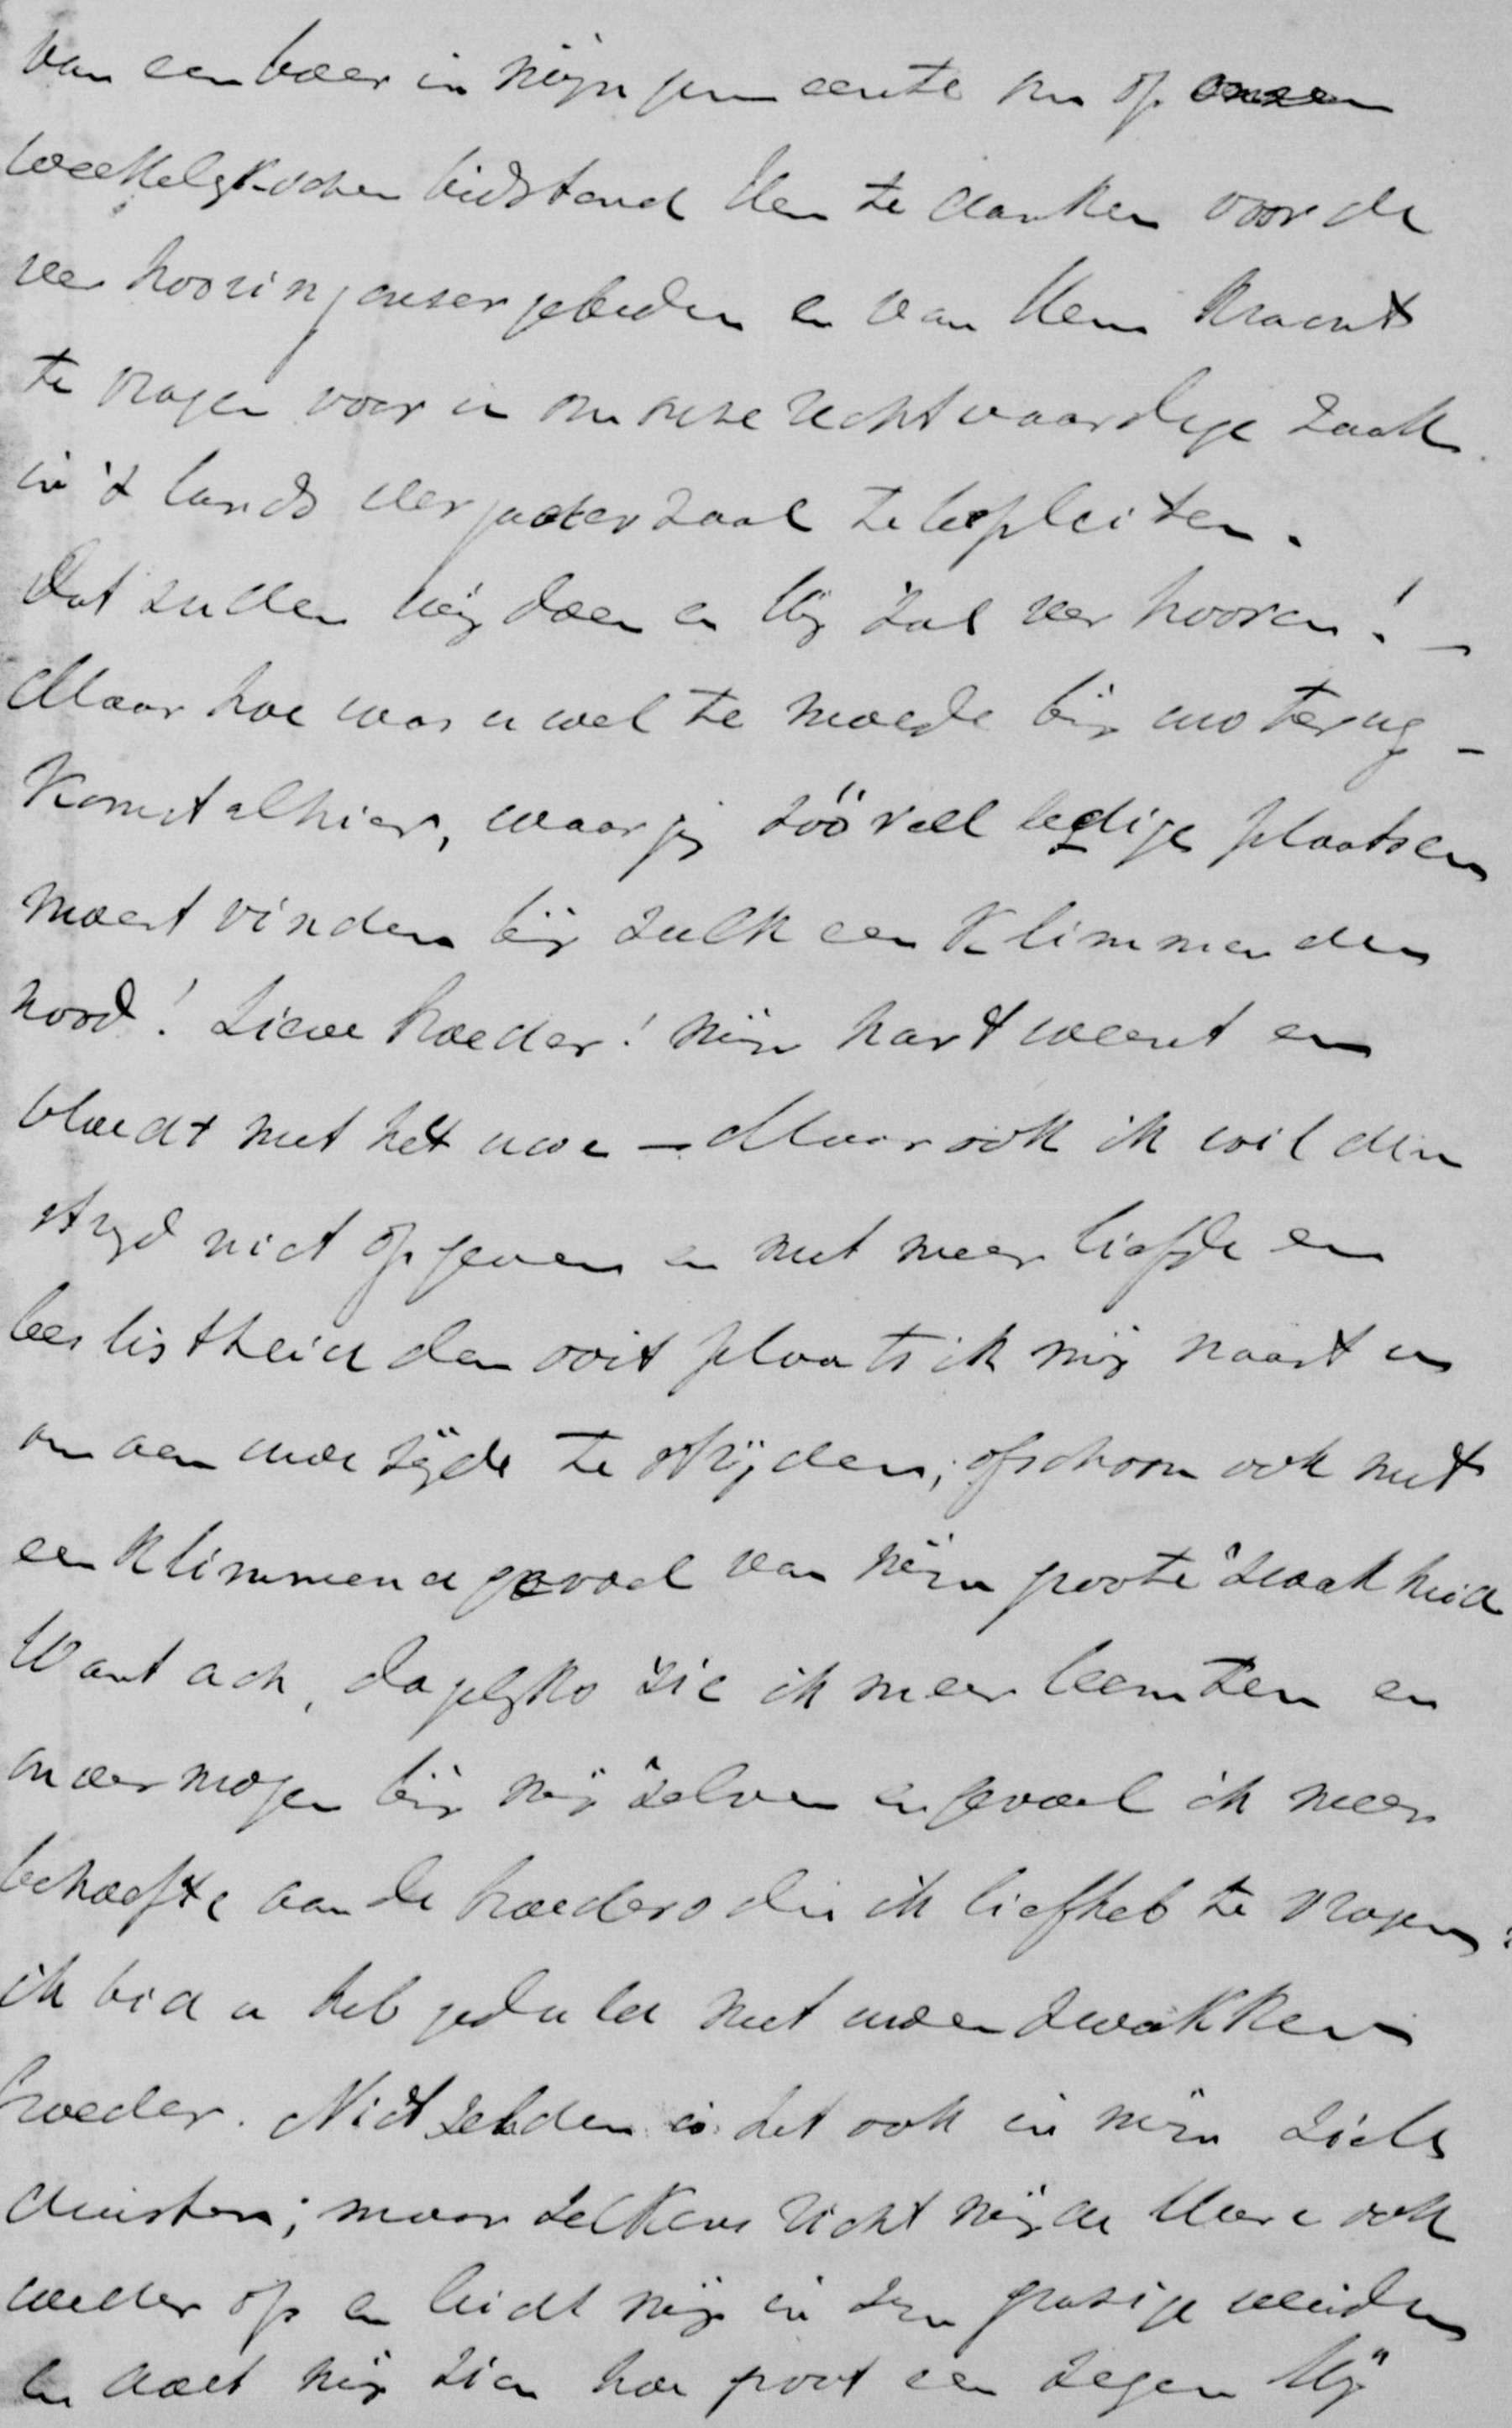 van een boer in mijn gemeente om op onzen
wekelijkschen bidstond Hem te danken voor de
verhooring onzer gebeden en van Hem kracht
te vragen voor u om onze rechtvaardige zaak
in 's lands vergaderzaal te bepleiten.
Dat zullen wij doen en Hij zal verhooren! –
Maar hoe was u wel te moede bij uw terug-
komst alhier, waar gij zóó veel ledige plaatsen
moest vinden bij zulk een klimmenden
nood! Lieve broeder! mijn hart weent en
bloedt met het uwe – Maar ook ik wil den
strijd niet opgeven en met meer liefde en
beslistheid dan ooit plaats ik mij naast u
om aan uwe zijde te strijden; ofschoon ook met
een klimmend gevoel van mijn groote zwakheid
Want ach, dagelijks zie ik meer leemten en
onvermogen bij mij zelven en gevoel ik meer
behoefte aan de broeders die ik liefheb te vragen:
ik bid u heb geduld met uwen zwakken
broeder. Niet zelden is het ook in mijn ziele
duister; maar telkens richt mij de Heere ook
weder op en leidt mij in zijn grazige weiden
en doet mij zien hoe groot een zegen Hij